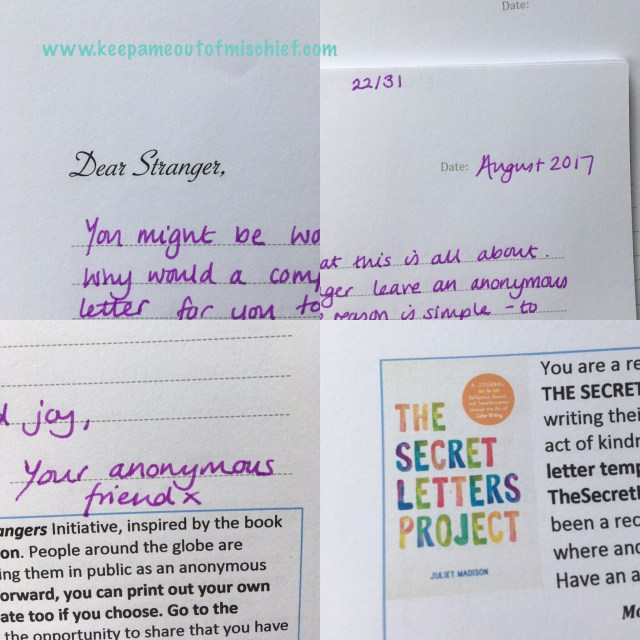 www.keepameoutofmischief.com
Dear Stranger,
You might be wo
Why would a com
letter for you to
Date:
22/31
Date: August 2017
at this is all about.
ger leave an anonymous
reason is simple - to
d joy,
Your anonymous
friend x
angers Initiative, inspired by the book
on. People around the globe are
ing them in public as an anonymous
orward, you can print out your own
ate too if you choose. Go to the
the opportunity to share that you have
A JOURNAL
THE
SECRET
LETTERS
PROJECT
JULIET MADISON
You are a re
THE SECRET
writing thei
act of kind
letter temp
TheSecretL
been a rec
where and
Have an a
Mo